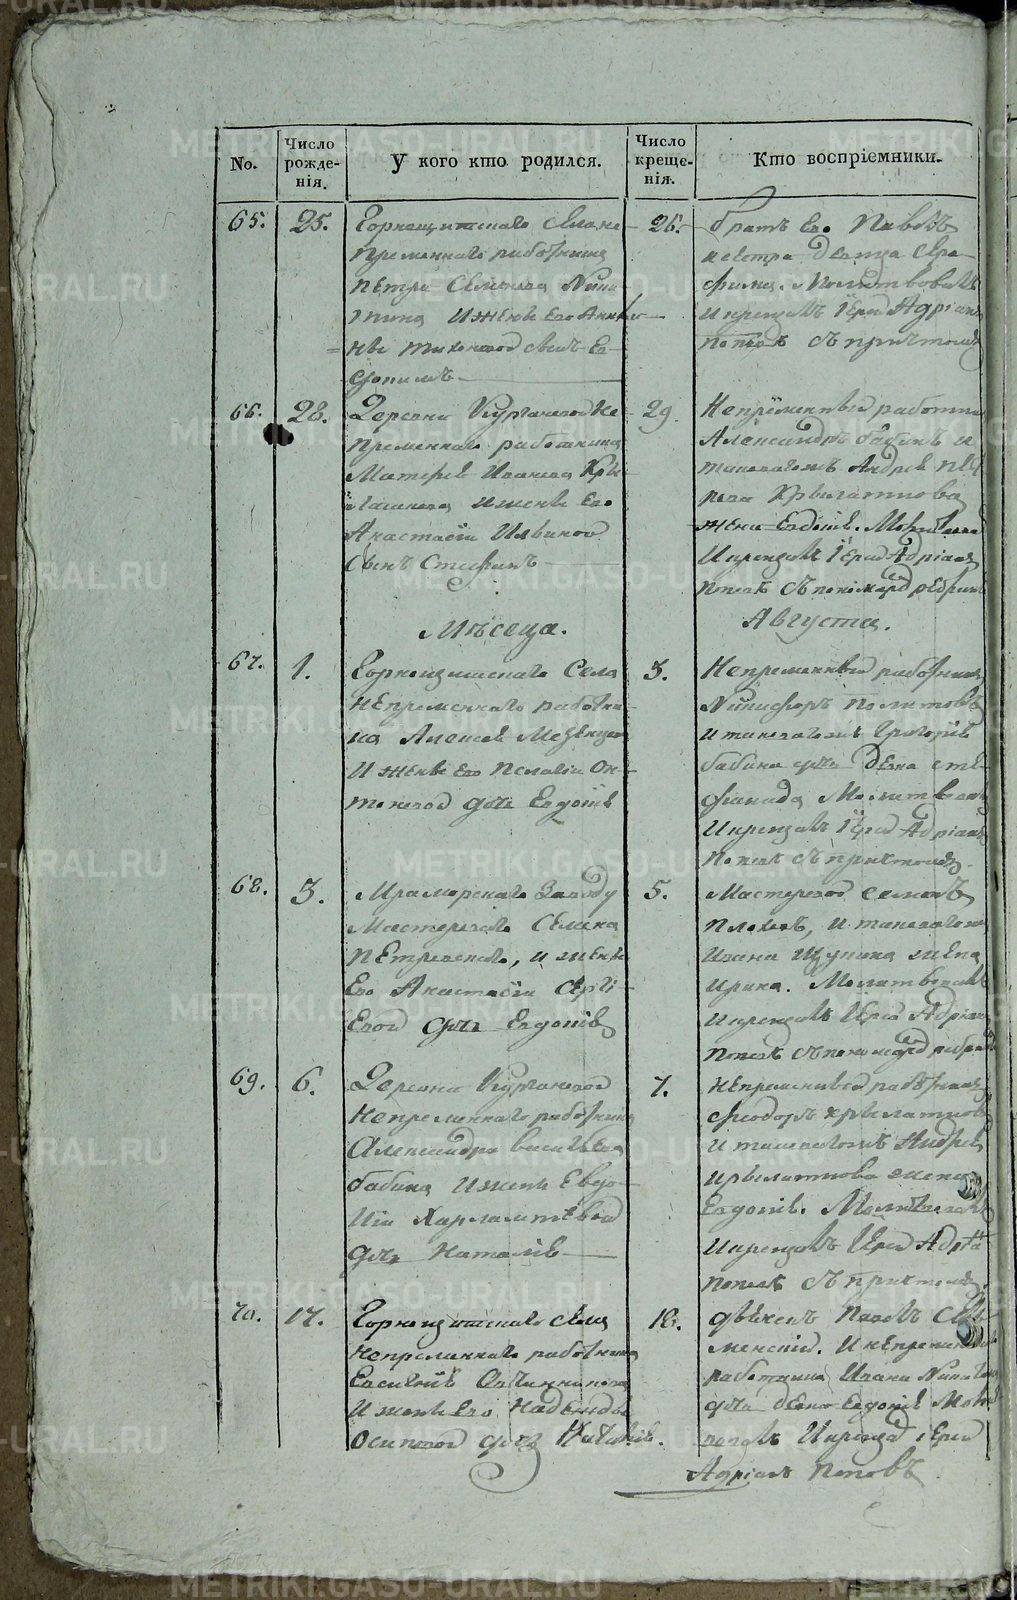 No.
Число рожде-нія.
У кого кто родился.
Число креще-нія.
Кто воспріемники.
65.
25.
Горнощитскаго села не
премѣннаго работника
Петра Семенова Ники
тина и женѣ его Анны
Тихоновой сынъ Ев
26.
братъ его Павелъ
Молитвовалъ
и крещалъ Іерей Адріанъ
Поповъ съ причтомъ
66.
28.
Деревни Кургановой не
премѣннаго работника
Матфея Иванова Кры
латкова и женѣ его
Анастасіи Ильиной
сынъ Стефанъ
29.
Непремѣнный работникъ
Александръ Бабинъ и
таковагожъ Андрея
Крылаткова
жена Евдокія. Молитвовалъ
и крещалъ Іерей Адріанъ
Поповъ съ пономаремъ
Мѣсеца.
Августа.
67.
1.
Горнощитскаго села
непремѣннаго работни
ка Алексея Мезенцова
и женѣ его Пелагіи Ан
тоновой дочь Евдокія
3.
Непремѣнный работникъ
Никифоръ Политовъ
и таковагожъ Григорія
Бабина дочь девка Сте
фанида Молитвовалъ
и крещалъ Іерей Адріанъ
Поповъ съ причтомъ.
68.
3.
Мраморскаго Заводу
Мастероваго Семена
Петровскаго, и женѣ
его Анастасіи Сергі
евой дочь Евдокія
5.
Мастеровой Семенъ
и таковагожъ
Ивана Щукина жена
Ирина. Молитвовалъ
и крещалъ Іерей Адріанъ
Поповъ съ пономаремъ
69.
6.
Деревни Кургановой
Непремѣннаго работника
Александра Васильева
Бабина и женѣ Евдо
кіи Харлампіевой
дочь Наталія
7.
Непремѣнный работникъ
Феодоръ Крылатковъ
и таковагожъ Андрея
Крылаткова жена
Евдокія. Молитвовалъ
и крещалъ Іерей Адріанъ
Поповъ съ причтомъ.
70.
17.
Горнощитскаго села
Непремѣннаго работника
Евсивія Овчинникова
и женѣ его Надежды
Осиповой дочь Наталія.
18.
дьячекъ Павелъ
и непремѣннаго
работника Ивана
дочь девка Евдокія Молит
вовалъ и крещалъ іерей
Адріанъ Поповъ
METRIKI.GASO-URAL.RU